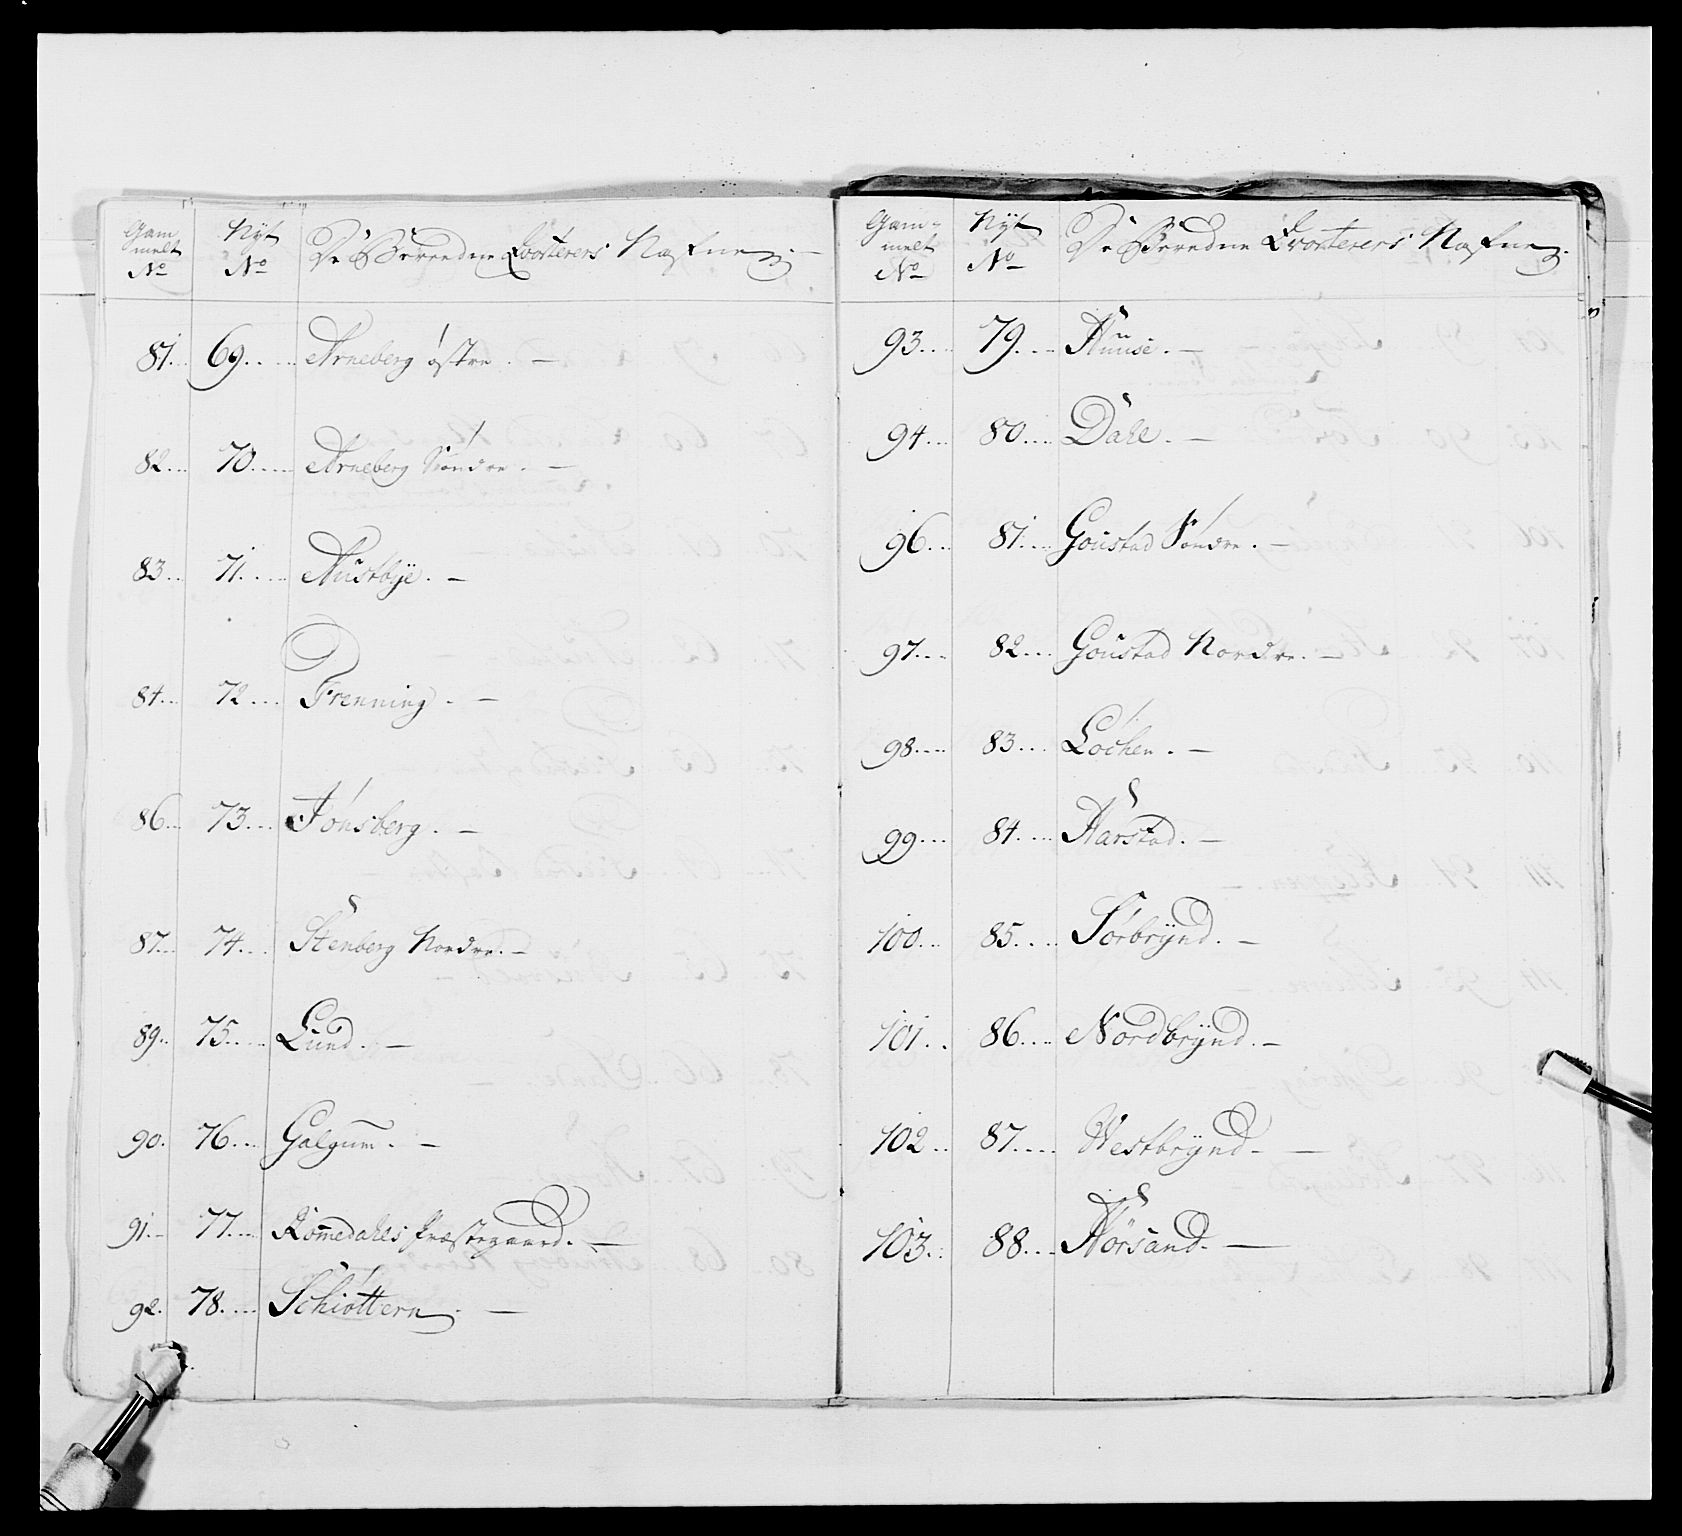 Gam
melt
No
Nyt
No
De Beredne Qvarterers Nafne
81. 69. Arneberg østre. —
82. 70. Arneberg Søndre. —
83. 71. Austbÿe. —
84. 72. Frenning. —
86. 73. Jønsberg. —
87. 74. Stenberg Nordre. —
89. 75. Lund. —
90. 76. Galgum̅. —
91. 77. Rom̅edahls Præstegaard. —
92. 78. Schiøttern. —
Gam-
melt
No
Nyt
No
De Beredne Qvarterers Nafne
93. 79. Huuse. —
94. 80. Dahl. —
96. 81. Goustad Søndre. —
97. 82. Goustad Nordre. —
98. 83. Løchen. —
99. 84. Harstad. —
100. 85. Sørbrÿnd. —
101. 86. Nordbrÿnd. —
102. 87. Westbrÿnd. —
103. 88. Hørsand. —